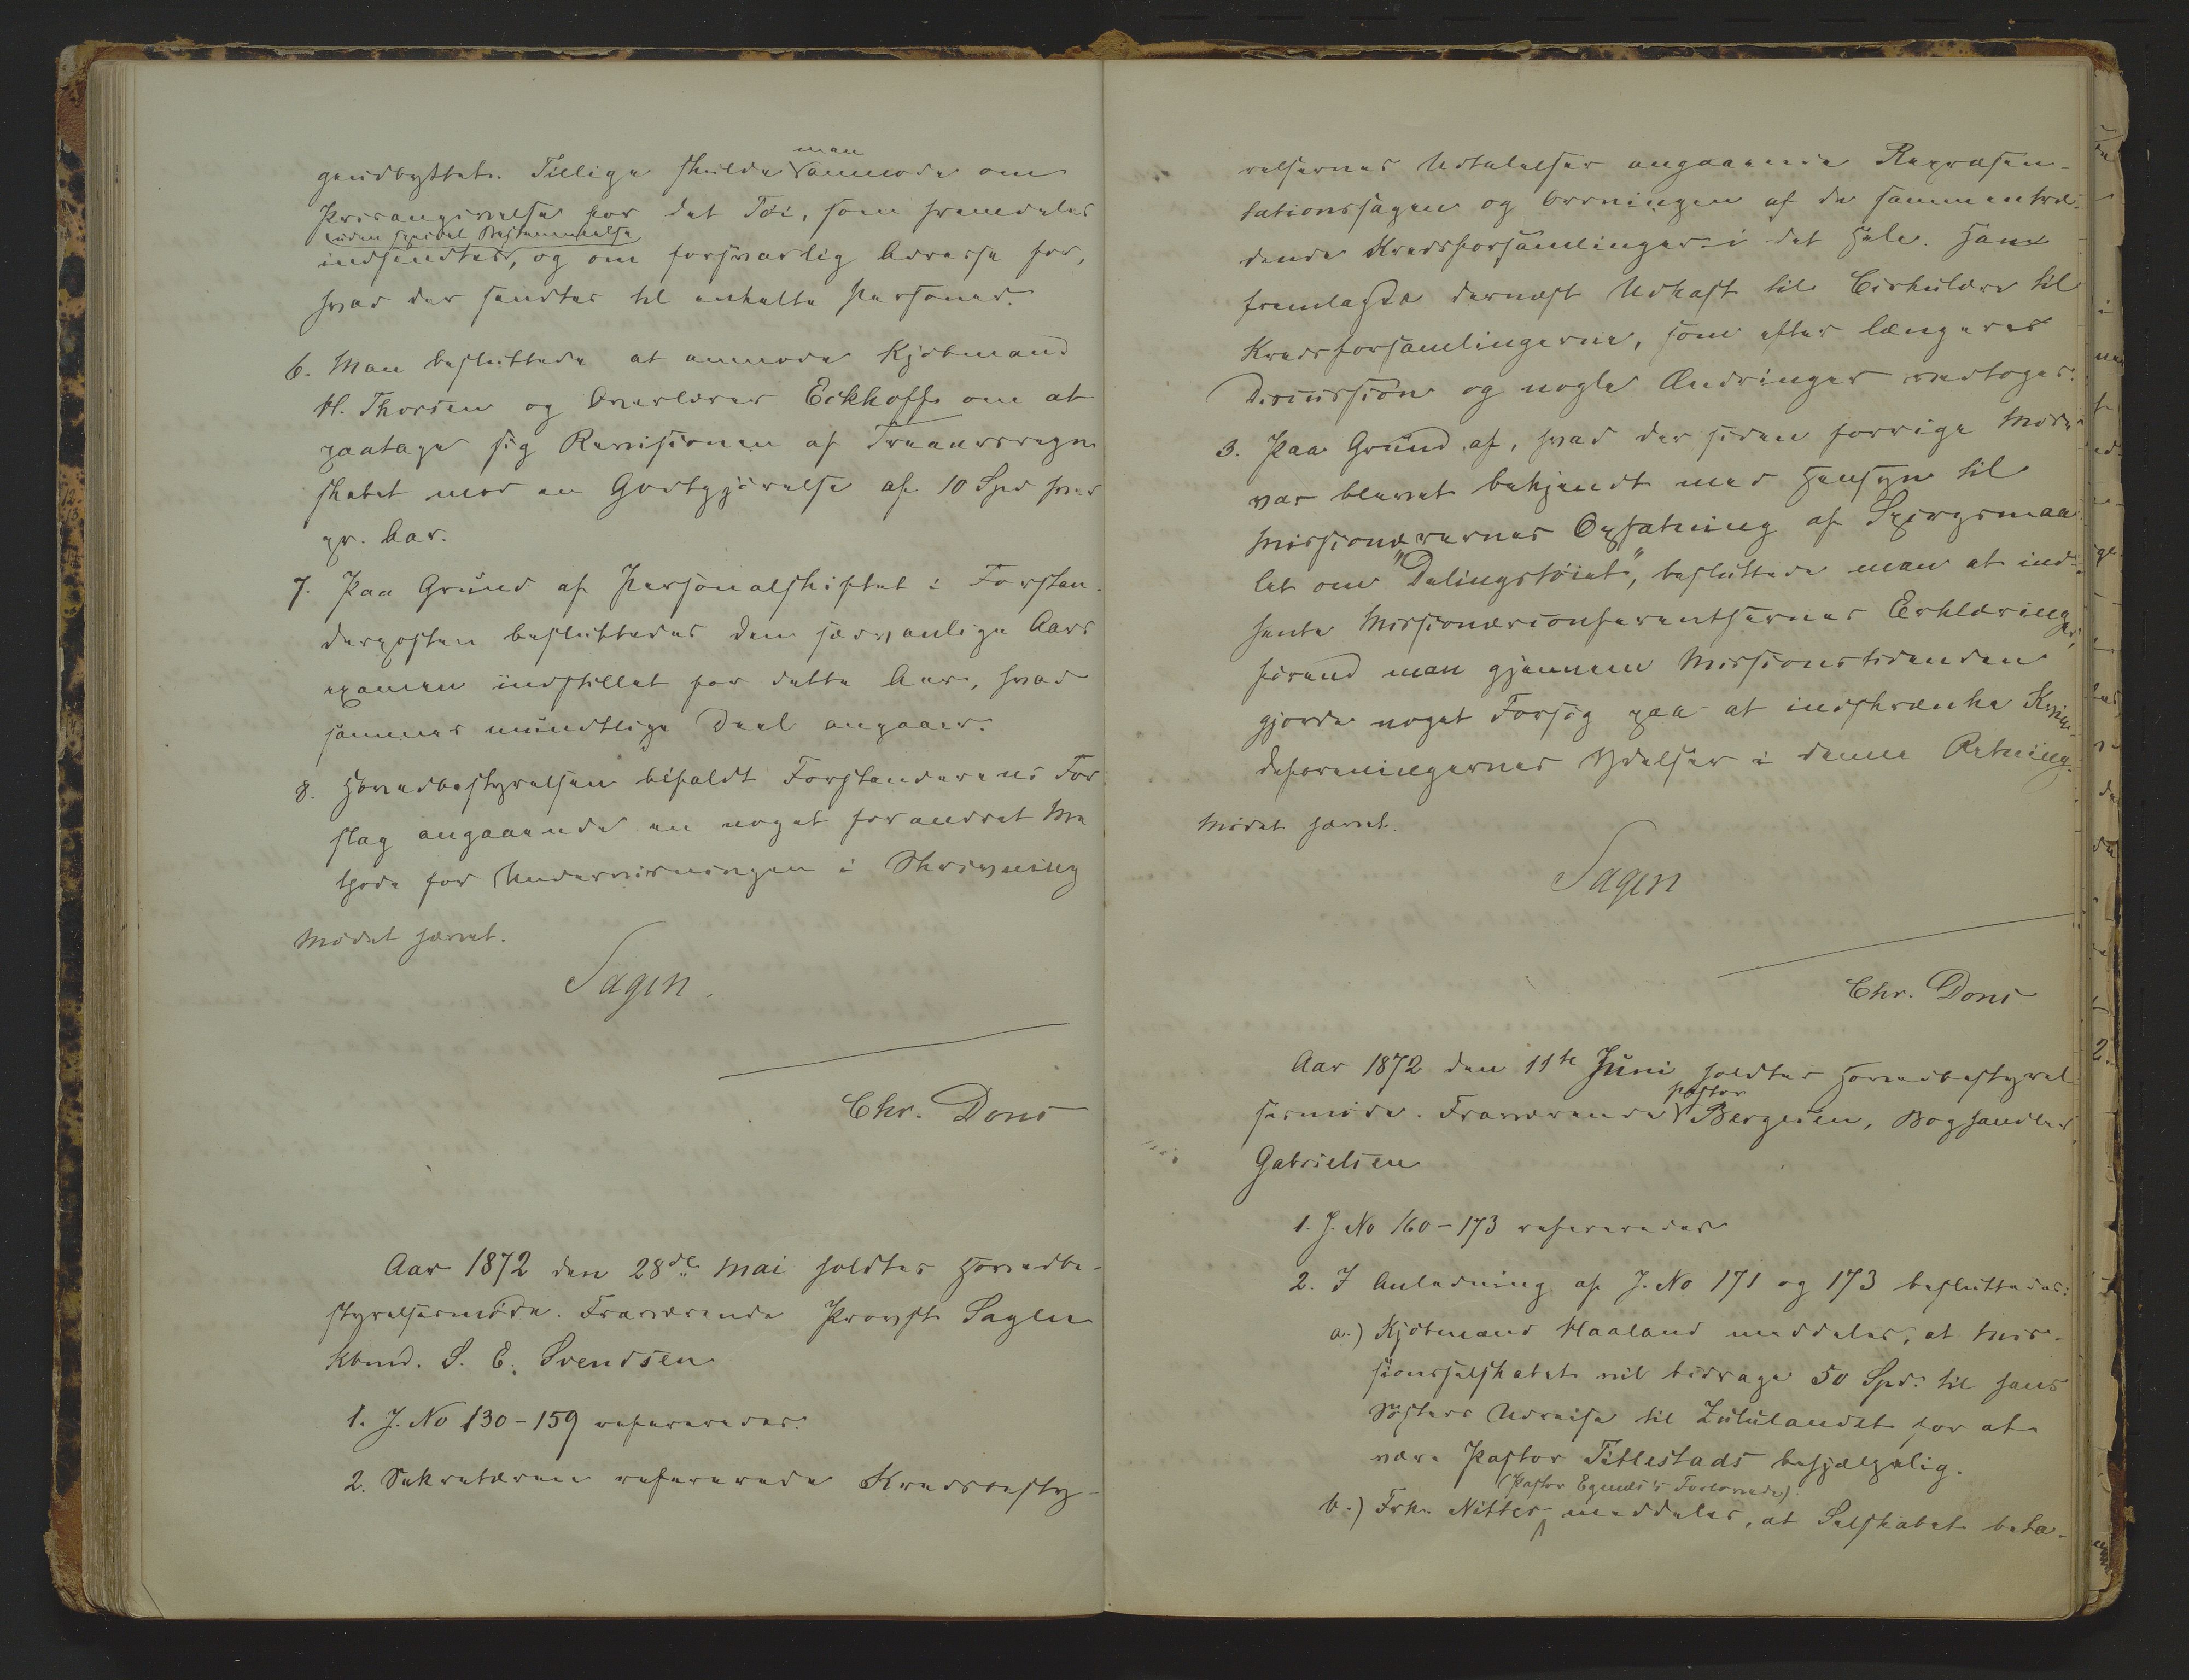 gendbyttet. Tillige skulde man anmode om
Prisangivelse for det Töi, som fremdeles
uden speciel Bestemmelse
indsendtes, og om forsvarlig Adresse for,
hvad der sendtes til enkelte Personer.
6. Man besluttede at anmode Kjöbmand
H. Thorsen og Overlærer Eckhoff om at
paatage sig Revisionen af Treaarsregn
skabet mod en Godtgjörelse af 10 Spd hver
pr. Aar.
7. Paa Grund af Personalskiftet i Forstan-
derposten besluttedes den sædvanlige Aars
examen indstillet for dette Aar, hvad
sammes mundtlige Deel angaaer.
8. Hovedbestyrelsen bifaldt Forstanderens For
slag angaaende en noget forandret Me
thode for Undervisningen i Skrivning
Mödet hævet.
Sagen.
Chr. Dons
Aar 1872 den 28de Mai holdtes Hovedbe-
styrelsesmöde. Fraværende Provst Sagen
Kbmd. S. E. Svendsen
1. J. No 130-159 refereredes.
2. Sekretæren refererede Kredsbesty-
relsernes Udtalelser angaaende Repræsen-
tationssagen og Ordningen af de sammentræ-
dende Kredsforsamlinger i det Hele. Han
fremlagde dernæst Udkast til Cirkulære til
Kredsforsamlingerne, som efter længere
Discussion og nogle Ændringer vedtoges.
3. Paa Grund af, hvad der siden forrige Möde
var blevet bekjendt med Hensyn til
Missionærernes Opfatning af Spörgsmaa
let om "Delingstöiet", besluttede man at ind-
hente Missionærconferentsernes Erklæringer,
förend man gjennem Missionstidenden
gjorde noget Forsög paa at indskrænke Kvin-
deforeningernes Ydelser i denne Retning.
Mödet hævet.
Sagen
Chr. Dons
Aar 1872 den 11te Juni holdtes Hovedbestyrel
sesmöde. Fraværende Pastor Bergesen, Boghandler
Gabrielsen
1. J. No 160-173 refereredes
2. I Anledning af J. No 171 og 173 besluttedes:
a.) Kjöbmand Haaland meddeles, at Mis-
sionsselskabet vil bidrage 50 Spd. til hans
Sösters Udreise til Zululandet for at
være Pastor Titlestads behjælpelig.
(Pastor Egenæs's Forlovede)
b.) Frk. Nitter meddeles, at Selskabet beta-